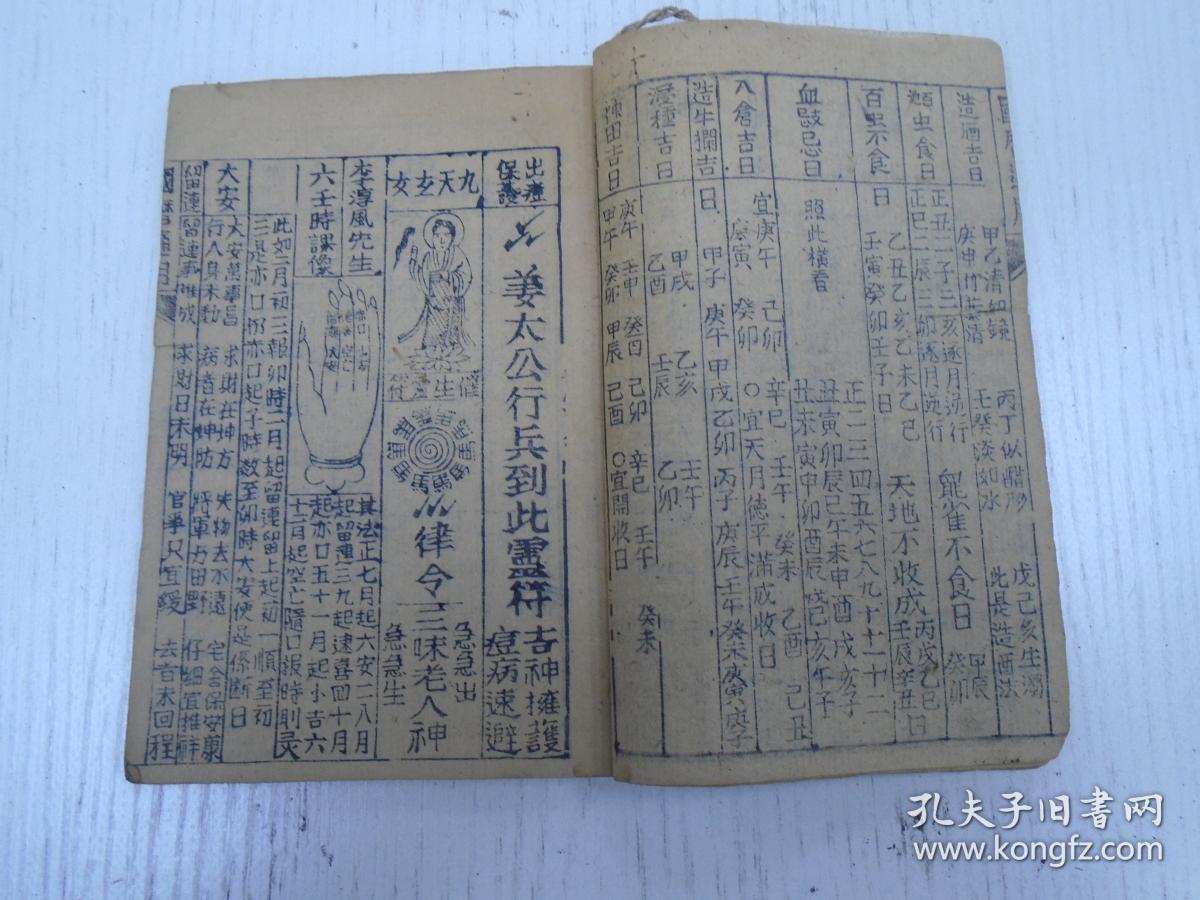 造酒吉日
甲乙清如鏡
丙丁似醋形
戊己多生濁
壬癸淡如水
此是造酒法
甲辰
癸卯
正丑二子三亥逐月逆行
鼠雀不食日
正巳二辰三卯逐月逆行
天地不收成
丙戌乙巳
壬辰辛丑日
百虫不食日
乙丑乙亥乙未乙巳
壬寅癸卯壬子日
血忌日
照此橫看
正二三四五六七八九十十一十二
丑寅卯辰巳午未申酉戌亥子
丑未寅申卯酉辰戌巳亥午子
入倉吉日
宜庚午
己卯
辛巳
壬午
癸未
乙酉
己丑
庚寅
癸卯
○宜天月德平滿成收日
造牛攔吉日
甲子
庚午
甲戌乙卯
丙子
庚辰
壬午
癸未庚寅庚子
浸種吉日
甲戌
乙亥
壬午
乙酉
壬辰
乙卯
田吉日
庚午
壬申
癸酉
己卯
辛巳
壬午
癸未
甲午
癸卯
甲辰
己酉
○宜開收日
出痘
保護
姜太公行兵到此
靈符
吉神擁護
痘病速避
九天玄女
催生靈符
律令
三味老人神
急急出
急急生
李淳風先生
六壬時課像
其法正七月起六安二八月
起留連三九起速喜四十月
起赤口五十一月起小吉六
十二月起空亡隨口報時則灵
此如二月初三報卯時二月起留連留上起初一順至初
三是亦口初赤口起子時数至卯時大安便是係斷日
大安
大安萬事昌
求財在坤方
失物去不遠
宅舍保安康
行人身未動
病者在坤防
將軍方田野
仔細宜推祥
留連
留連事難成
求財日未明
官事只宜緩
去者未回程
孔夫子旧书网
www.kongfz.com